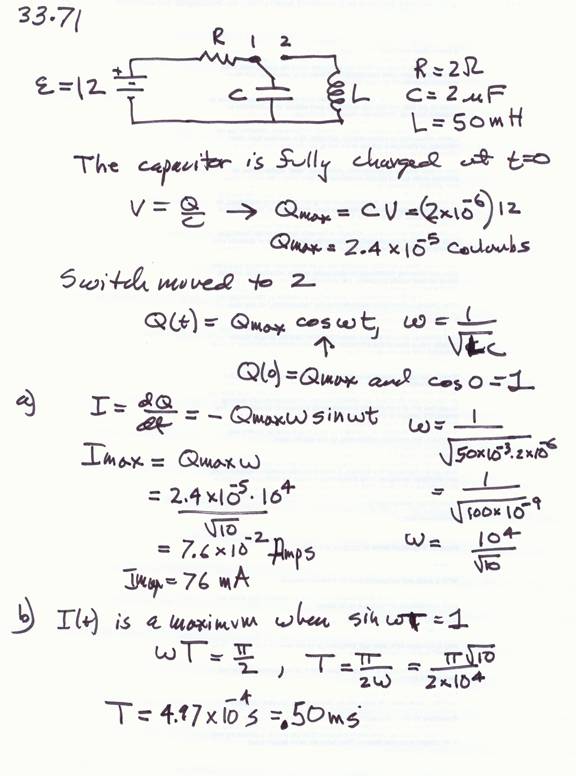 33.71
R 1 2
ε=12 + C L
R=2Ω
C=2μF
L=50mH
The capacitor is fully charged at t=0
V = Q/C → Qmax = CV = (2×10^-6) 12
Qmax = 2.4×10^-5 Coulombs
Switch moved to 2
Q(t) = Qmax cos ωt, ω = 1/√LC
↑
Q(0) = Qmax and cos 0 = 1
a) I = dQ/dt = - Qmax ω sin ωt ω = 1/√50×10^-3·2×10^-6
Imax = Qmax ω
= 2.4×10^-5·10^4/√10 = 1/√100×10^-9
= 7.6×10^-2 Amps ω = 10^4/√10
Imax = 76 mA
b) I(t) is a maximum when sin ωT = 1
ωT = π/2, T = π/2ω = π√10/2×10^4
T = 4.97×10^-4 s = .50ms